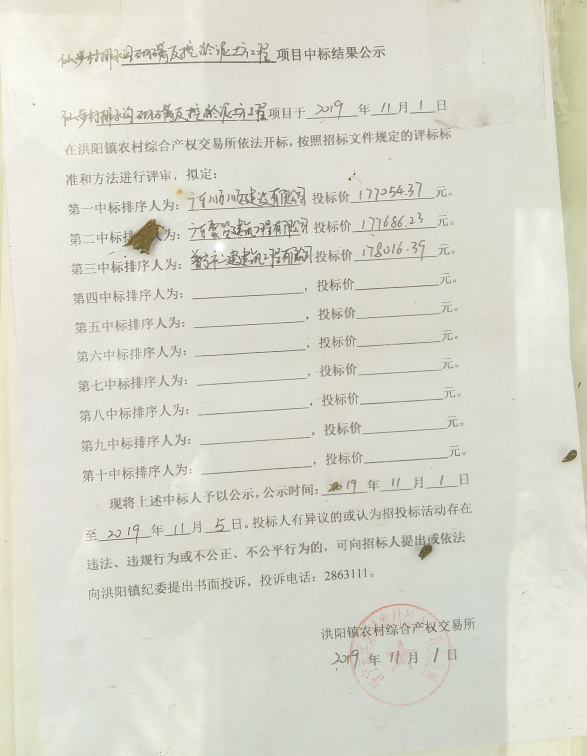 仙步村排水沟砌磡及挖淤泥土方工程项目中标结果公示
仙步村排水沟砌磡及挖淤泥土方工程项目于 2019 年 11 月 1 日
在洪阳镇农村综合产权交易所依法开标，按照招标文件规定的评标标
准和方法进行评审，拟定：
第一中标排序人为：广东顺建设有限公司 投标价 177054.37 元。
第二中标排序人为：广东建筑工程有限公司 投标价 177686.23 元。
第三中标排序人为：普宁市二建建筑工程有限公司 投标价 178016.39 元。
第四中标排序人为：，投标价元。
第五中标排序人为：，投标价元。
第六中标排序人为：，投标价元。
第七中标排序人为：，投标价元。
第八中标排序人为：，投标价元。
第九中标排序人为：，投标价元。
第十中标排序人为：，投标价元。
现将上述中标人予以公示，公示时间：2019 年 11 月 1 日
至 2019 年 11 月 5 日。投标人有异议的或认为招投标活动存在
违法、违规行为或不公正、不公平行为的，可向招标人提出或依法
向洪阳镇纪委提出书面投诉，投诉电话：2863111。
洪阳镇农村综合产权交易所
2019 年 11 月 1 日